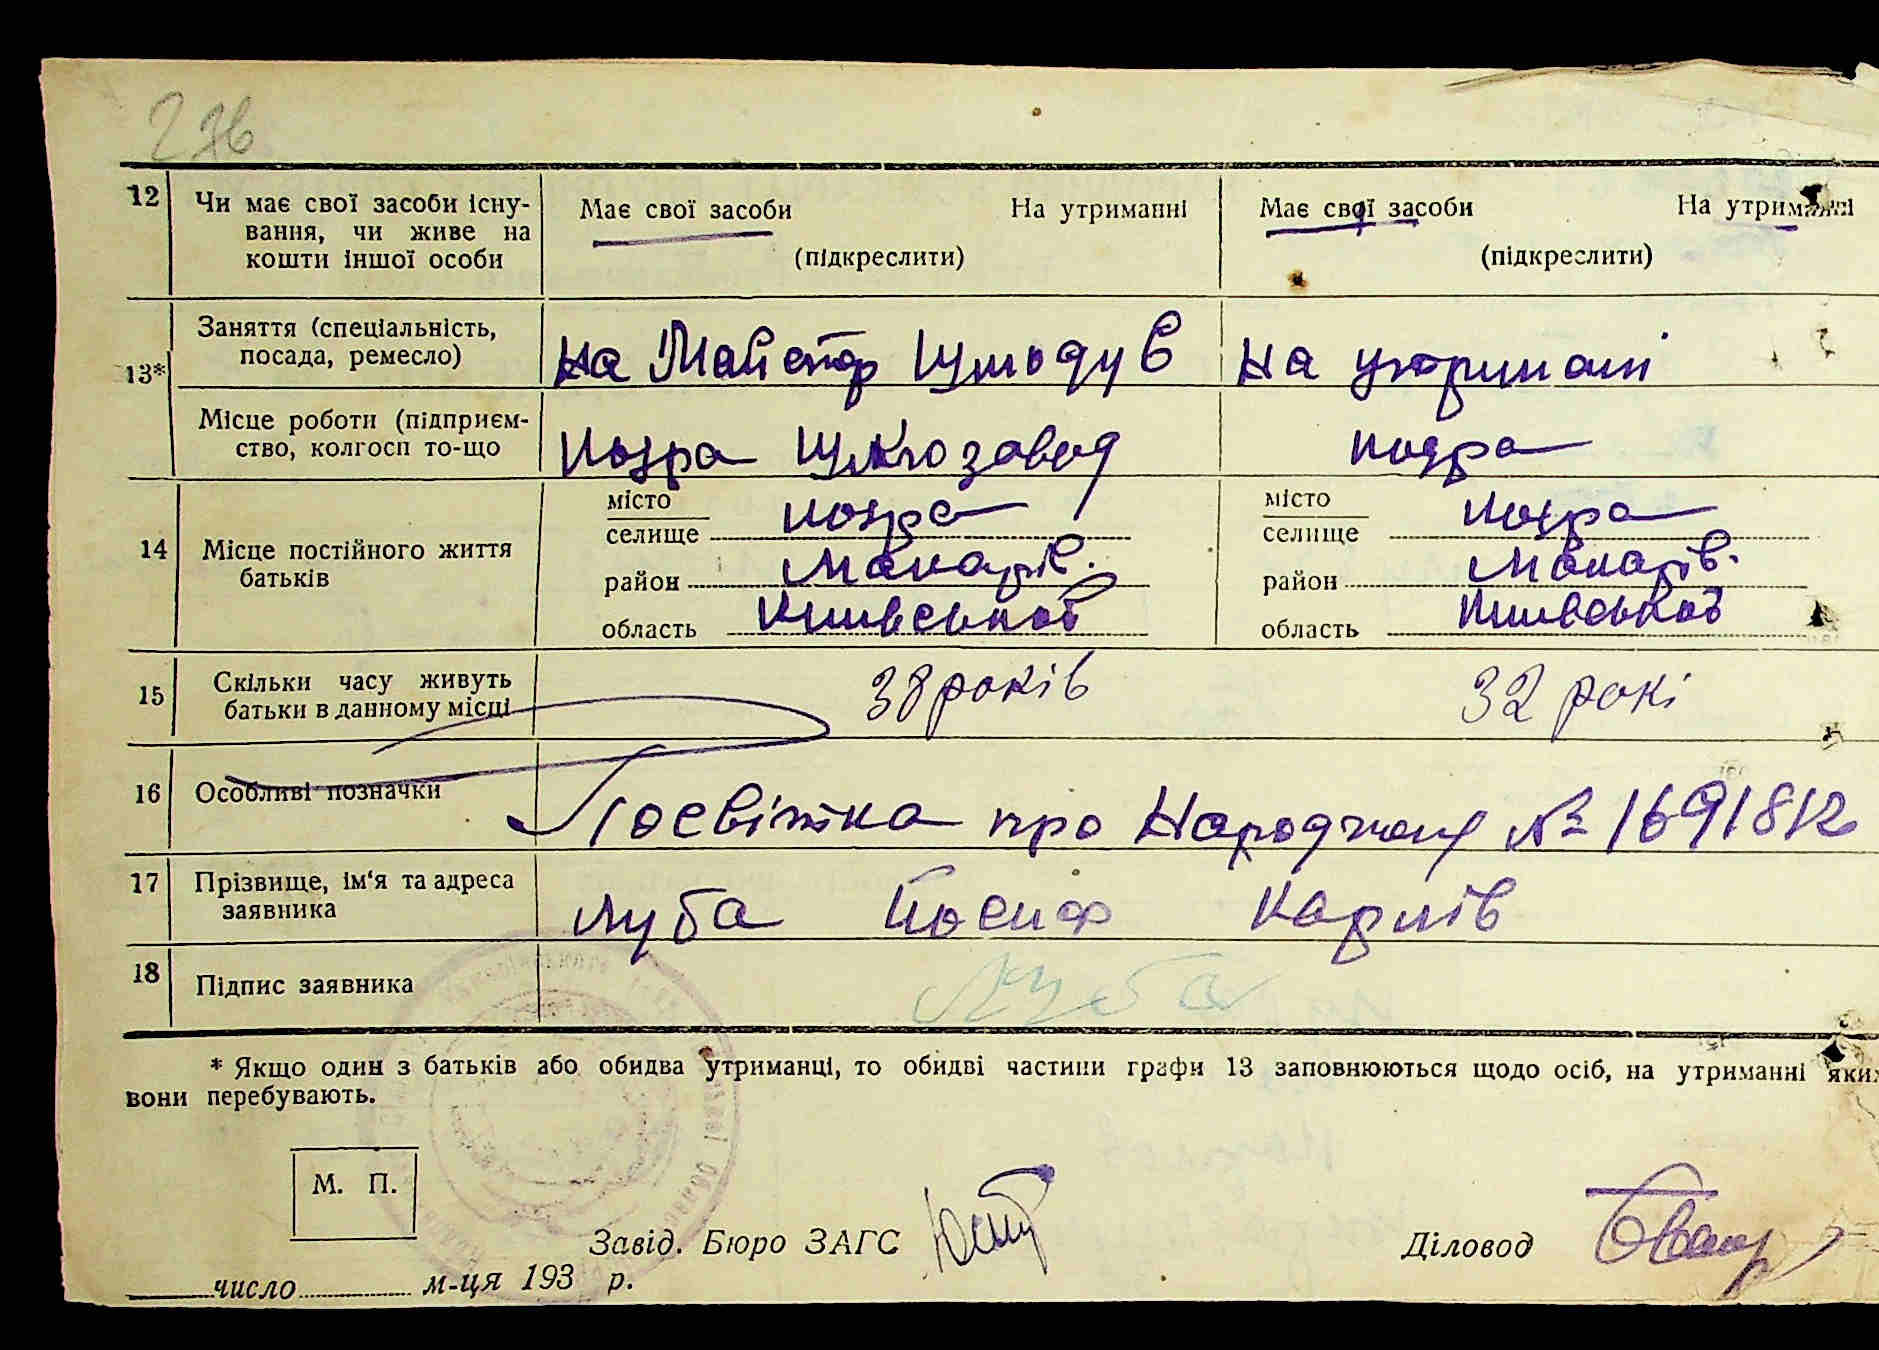 276
12 Чи має свої засоби існу-
вання, чи живе на
кошти іншої особи
Має свої засоби На утриманні
(підкреслити)
Має свої засоби На утриманні
(підкреслити)
13* Заняття (спеціальність,
посада, ремесло)
на Майстор
на утриманні
Місце роботи (підприєм-
ство, колгосп то-що
завод
14 Місце постійного життя
батьків
місто
селище
район Макарів.
область Київської
місто
селище
район Макарів.
область Київської
15 Скільки часу живуть
батьки в данному місці
38 років
32 рокі
16 Особливі позначки
Посвітка про Народжену № 1691812
17 Прізвище, ім'я та адреса
заявника
Луба Йосиф Карлів
18 Підпис заявника
Луба
* Якщо один з батьків або обидва утриманці, то обидві частини графи 13 заповнюються щодо осіб, на утриманні яких
вони перебувають.
М. П.
Завід. Бюро ЗАГС
Діловод
число м-ця 193 р.